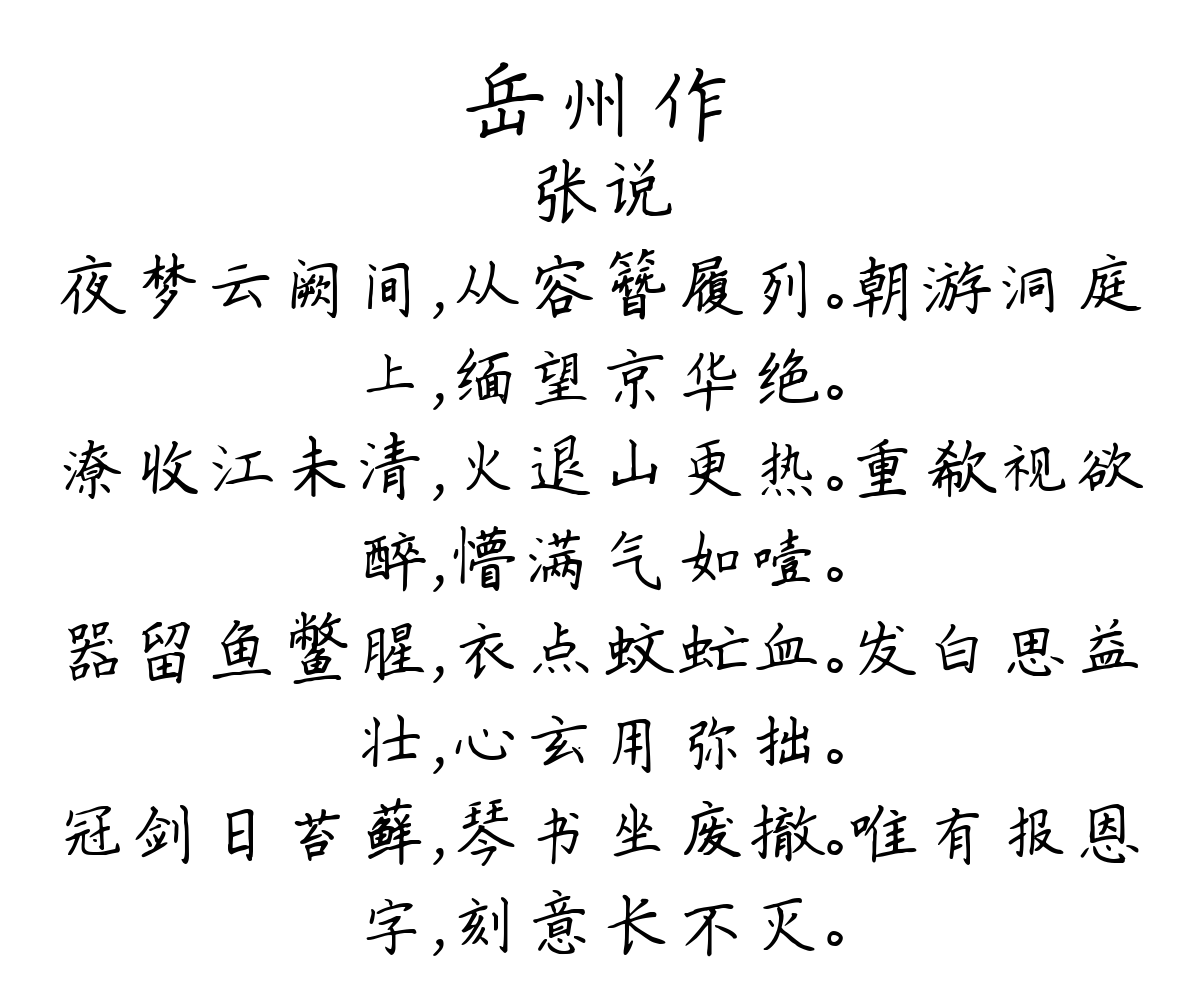 岳州作
张说
夜梦云阙间,从容簪履列。朝游洞庭
上,缅望京华绝。
潦收江未清,火退山更热。重欷视欲
醉,懵满气如噎。
器留鱼鳖腥,衣点蚊虻血。发白思益
壮,心玄用弥拙。
冠剑日苔藓,琴书坐废撤。唯有报恩
字,刻意长不灭。